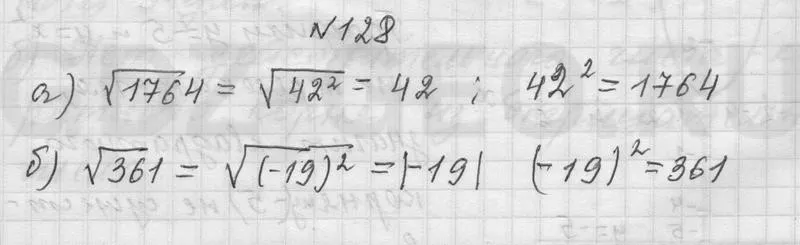 №128
а) √1764 = √42² = 42 ; 42² = 1764
б) √361 = √(-19)² = |-19| (-19)² = 361